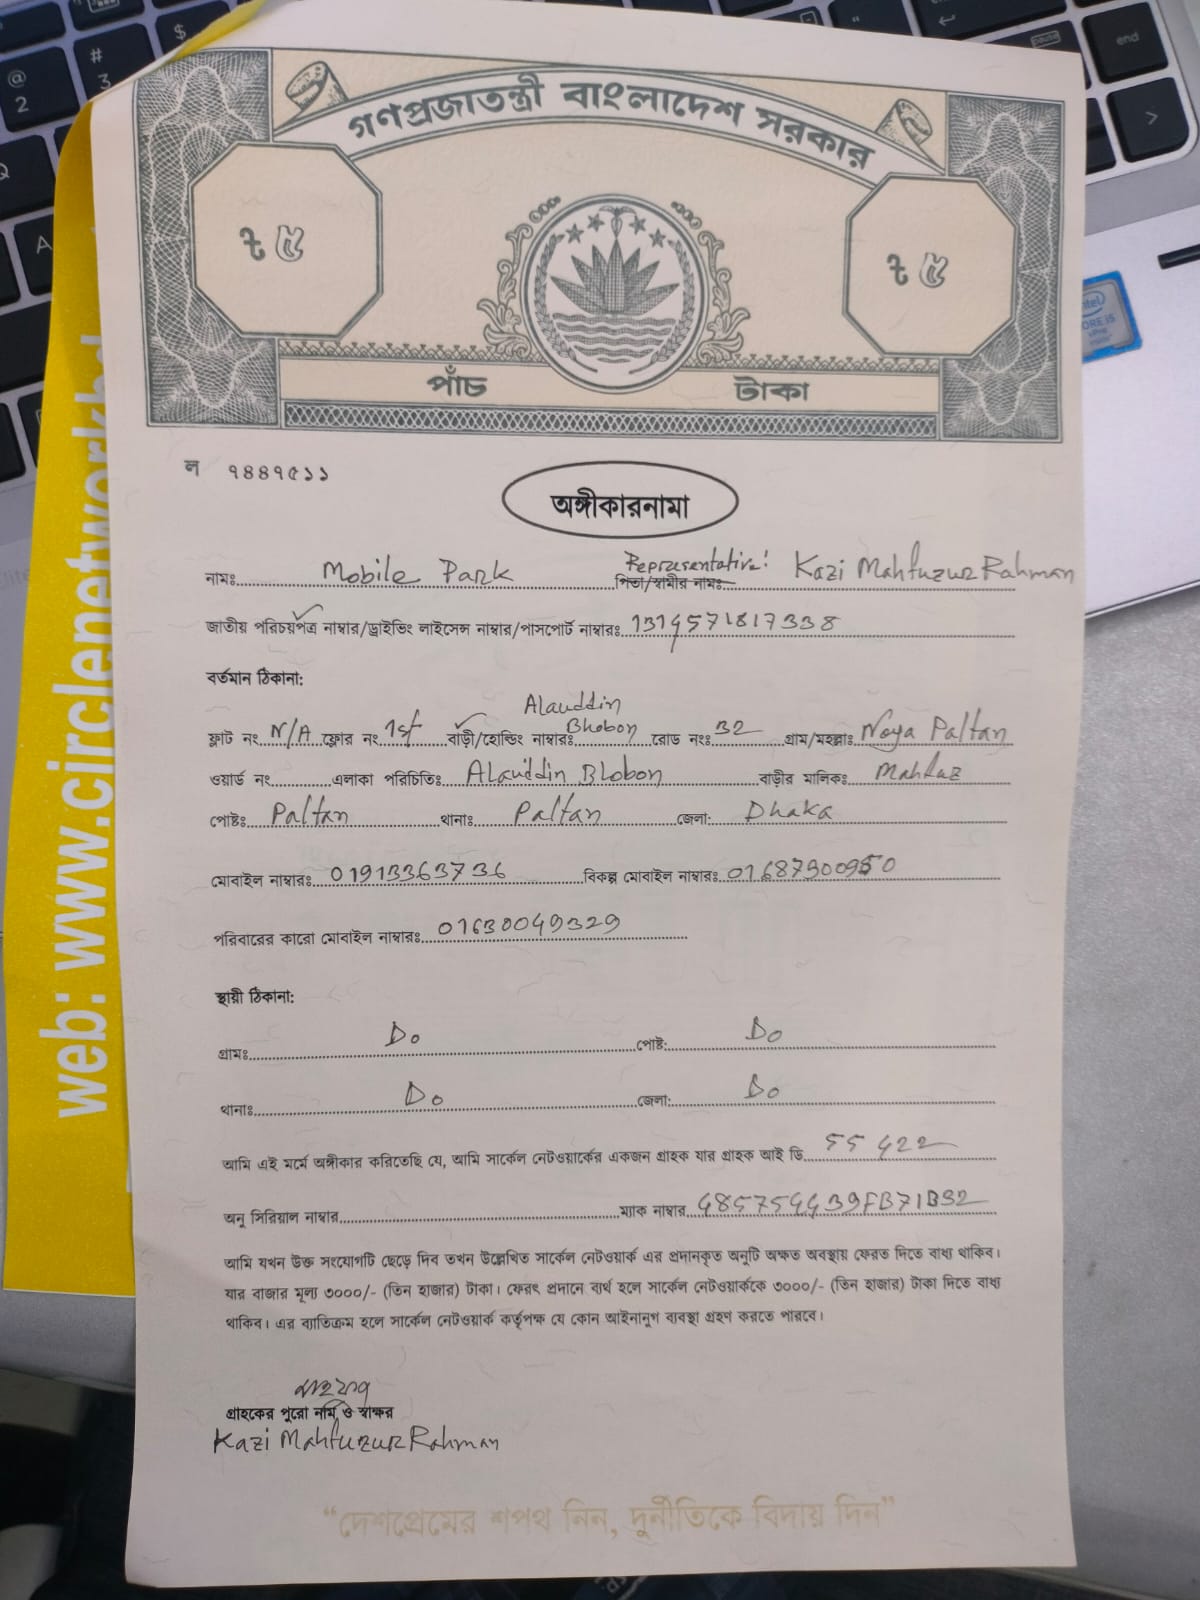 গণপ্রজাতন্ত্রী বাংলাদেশ সরকার
৳ ৫
৳ ৫
পাঁচ টাকা
ল ৭৪৪৭৫১১
অঙ্গীকারনামা
নামঃ Mobile Park পিতা/স্বামীর নামঃ Representative: Kazi Mahfuzur Rahman
জাতীয় পরিচয়পত্র নাম্বার/ড্রাইভিং লাইসেন্স নাম্বার/পাসপোর্ট নাম্বারঃ
বর্তমান ঠিকানা:
ফ্লাট নং N/A ফ্লোর নং 1st বাড়ী/হোল্ডিং নাম্বারঃ Alauddin Bhobon রোড নংঃ 32 গ্রাম/মহল্লাঃ Noya Paltan
ওয়ার্ড নং এলাকা পরিচিতিঃ Alauddin Bhobon বাড়ীর মালিকঃ Mahfuz
পোষ্টঃ Paltan থানাঃ Paltan জেলা: Dhaka
মোবাইল নাম্বারঃ 01913363736 বিকল্প মোবাইল নাম্বারঃ
পরিবারের কারো মোবাইল নাম্বারঃ 01630049329
স্থায়ী ঠিকানা:
গ্রামঃ Do পোষ্ট: Do
থানাঃ Do জেলা: Do
আমি এই মর্মে অঙ্গীকার করিতেছি যে, আমি সার্কেল নেটওয়ার্কের একজন গ্রাহক যার গ্রাহক আই ডি 55422
অনু সিরিয়াল নাম্বার ম্যাক নাম্বার
আমি যখন উক্ত সংযোগটি ছেড়ে দিব তখন উল্লেখিত সার্কেল নেটওয়ার্ক এর প্রদানকৃত অনুটি অক্ষত অবস্থায় ফেরত দিতে বাধ্য থাকিব।
যার বাজার মূল্য ৩০০০/- (তিন হাজার) টাকা। ফেরৎ প্রদানে ব্যর্থ হলে সার্কেল নেটওয়ার্ককে ৩০০০/- (তিন হাজার) টাকা দিতে বাধ্য
থাকিব। এর ব্যাতিক্রম হলে সার্কেল নেটওয়ার্ক কর্তৃপক্ষ যে কোন আইনানুগ ব্যবস্থা গ্রহণ করতে পারবে।
গ্রাহকের পুরো নাম ও স্বাক্ষর
Kazi Mahfuzur Rahman
“দেশপ্রেমের শপথ নিন, দুর্নীতিকে বিদায় দিন”
web: www.circlenetworkbd
# 3
@ 2
$
A
pause
end
intel
CORE i5
vPro